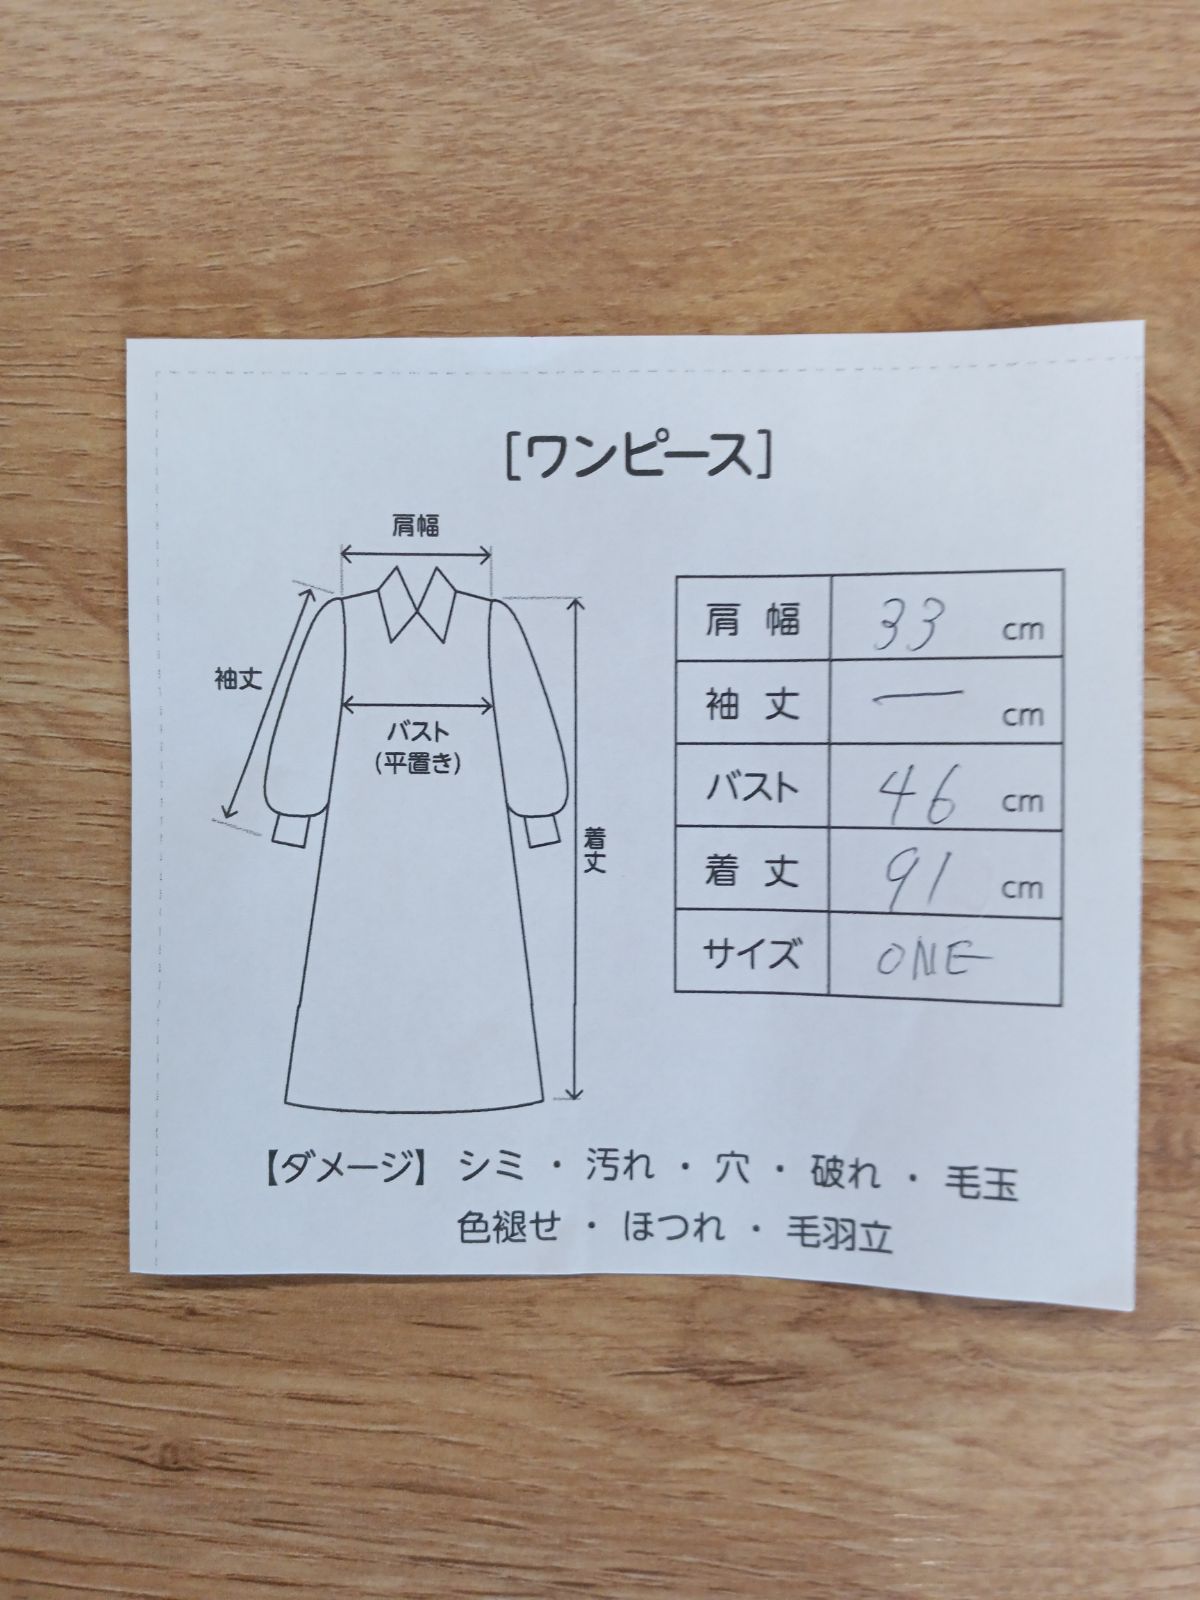 [ワンピース]
肩幅
袖丈
バスト
(平置き)
着丈
肩幅 33 cm
袖丈 ー cm
バスト 46 cm
着丈 91 cm
サイズ ONE
【ダメージ】 シミ ・ 汚れ ・ 穴 ・ 破れ ・ 毛玉
色褪せ ・ ほつれ ・ 毛羽立